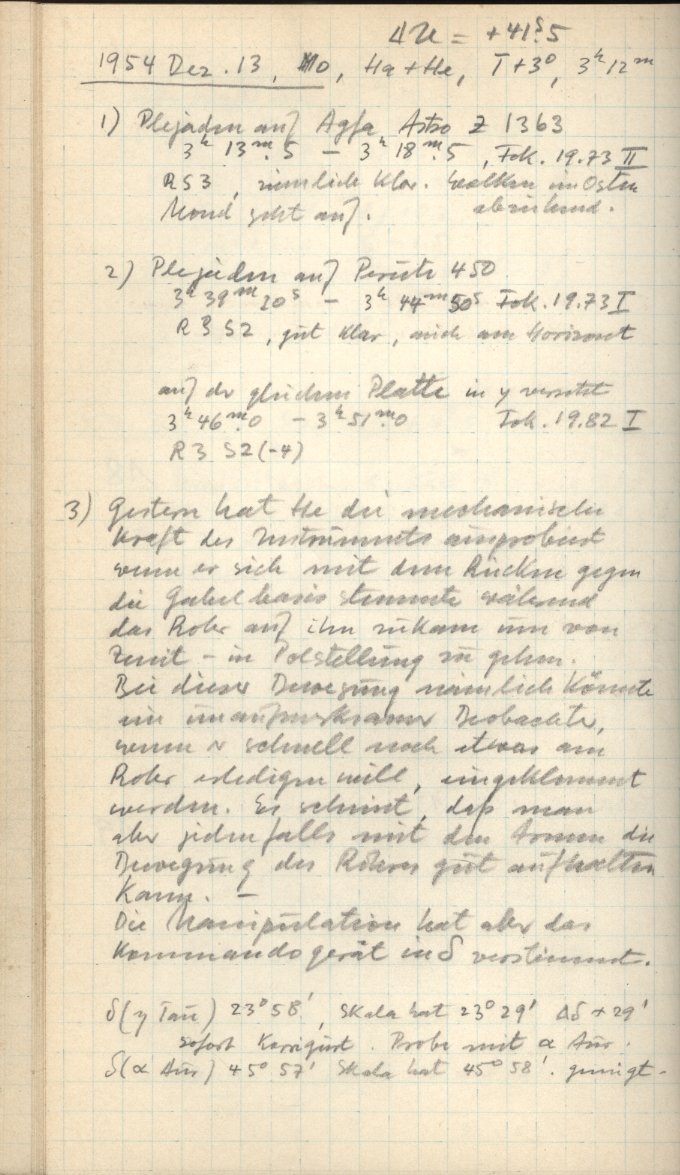 Δu = +41ˢ.5
1954 Dez. 13, Mo, Ha+He, T+3°, 3ʰ12ᵐ
1) Plejaden auf Agfa Astro Z 1363
3ʰ 13ᵐ.5 – 3ʰ 18ᵐ.5, Fok. 19.73 II
R S 3, ziemlich klar. Wolken im Osten
Mond geht auf. abziehend.
2) Plejaden auf Perutz 450
3ʰ 39ᵐ 20ˢ – 3ʰ 44ᵐ 50ˢ Fok. 19.73 I
R 3 S 2, gut klar, auch am Horizont
auf der gleichen Platte in y versetzt
3ʰ 46ᵐ.0 – 3ʰ 51ᵐ.0 Fok. 19.82 I
R 3 S 2 (-4)
3) Gestern hat He die mechanische
Kraft des Instruments ausprobiert
wenn er sich mit dem Rücken gegen
die Gabelbasis stemmte während
das Rohr auf ihn zukam um von
Zenit – in Polstellung zu gehen.
Bei dieser Bewegung nämlich könnte
ein unaufmerksamer Beobachter,
wenn er schnell noch etwas am
Rohr erledigen will, eingeklemmt
werden. Es scheint, dass man
aber jedenfalls mit den Armen die
Bewegung des Rohres gut aufhalten
kann. –
Die Manipulation hat aber das
Kommandogerät in δ verstimmt.
δ(η Tau) 23° 58', Skala hat 23° 29' Δδ + 29'
sofort korrigiert. Probe mit α Aur.
δ(α Aur) 45° 57' Skala hat 45° 58'. genügt.